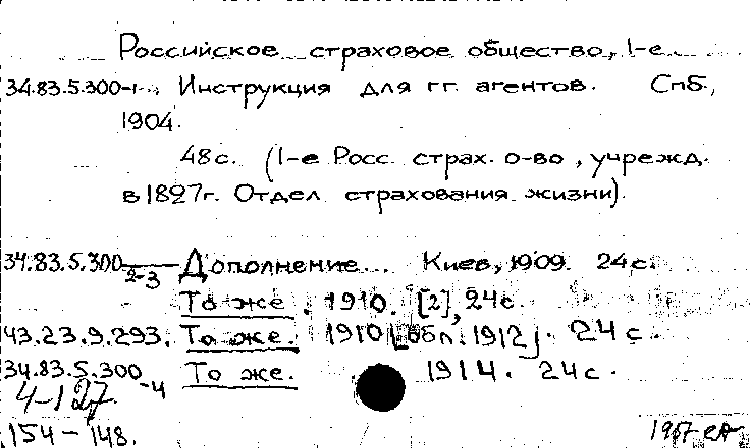 Российское страховое общество, 1-е
34.83.5.300-1. Инструкция для гг. агентов. Спб.,
1904.
48с. (1-е Росс. страх. о-во, учрежд.
в 1827г. Отдел страхования жизни).
34.83.5.300 2-3 Дополнение... Киев, 1909. 24с.
То же. 1910. [2], 24с.
43.23.9.293. То же. 1910 [обл. 1912]. 24с.
34.83.5.300-4 То же. 1914. 24с.
4-127
154-148.